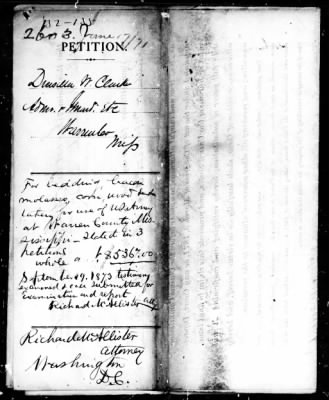 PETITION.
Drusilla W Clark
Admx. & Guard. Etc
Warren Co
Miss
For bedding bacon
molasses, corn wood
taken for use of US Army
at Warren County Mis-
sissippi - Stated in 3
petitions
whole a $8536.00
September 29. 1873 testimony
examined & case submitted for
examination and report
Richard McAllister atty
Richard McAllister
attorney
Washington
D.C.